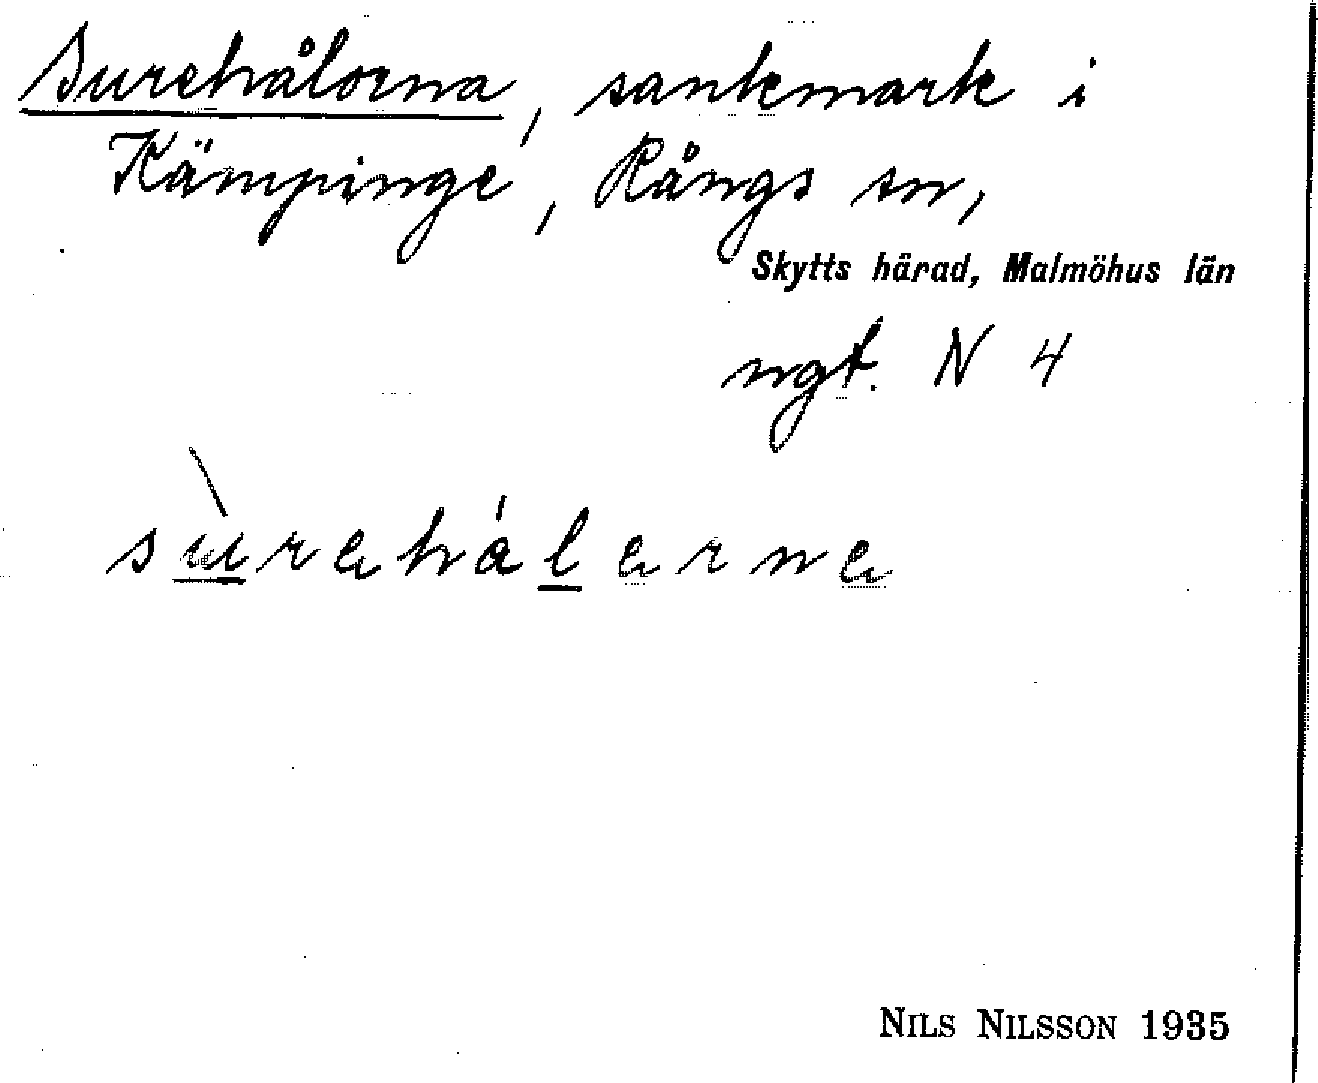 Surehålorna, sankmark i
Kämpinge, Rängs sn,
Skytts härad, Malmöhus län
ngt. N 4
NILS NILSSON 1935